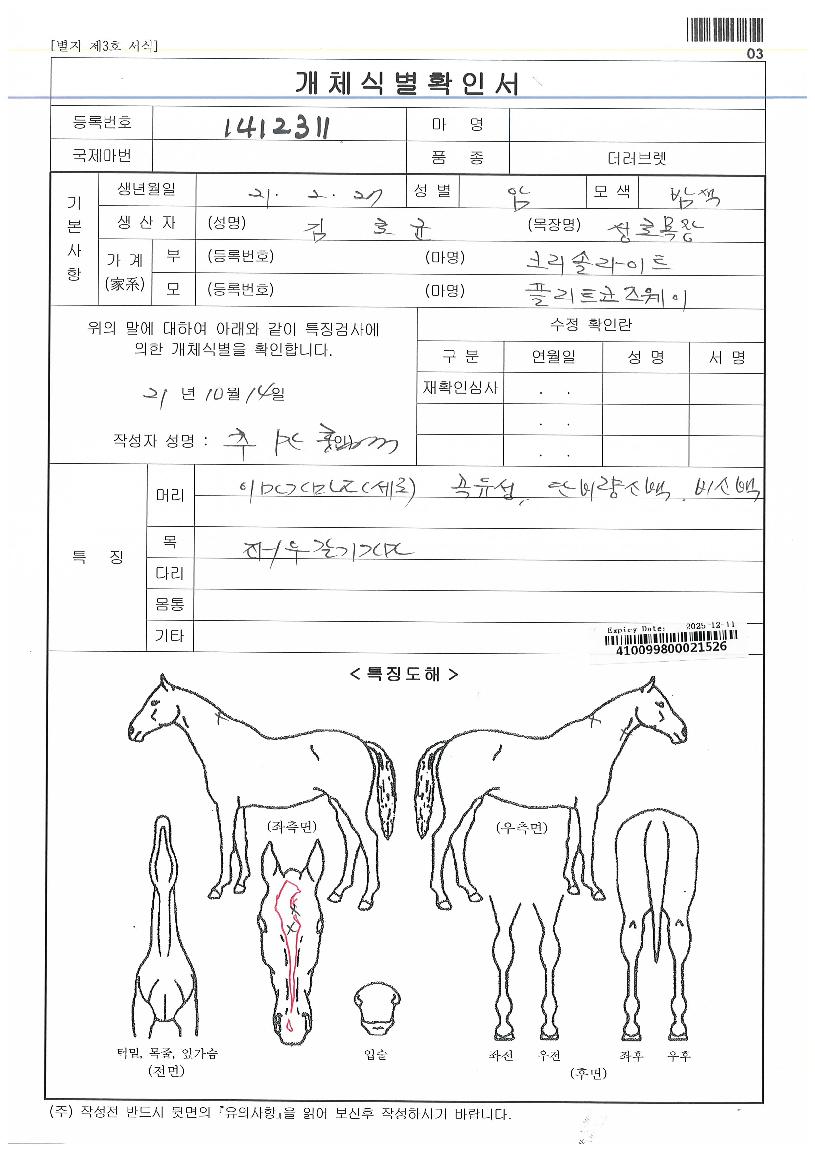 [별지 제3호 서식]
03
개체식별확인서
등록번호 1412311 마 명
국제마번 품 종 더러브렛
기본사항
생년월일 21. 2. 27 성 별 암 모 색 밤색
생 산 자 (성명) 김 균 (목장명) 성로목장
가 계 (家系) 부 (등록번호) (마명) 크리솔라이트
모 (등록번호) (마명) 플리트런즈웨이
위의 말에 대하여 아래와 같이 특징검사에
의한 개체식별을 확인합니다.
21 년 10월 14일
작성자 성명 :
수정 확인란
구 분 연월일 성 명 서 명
재확인심사 . .
. .
. .
특 징
머리 (세로) 유성, 비량산백, 비산백
목
다리
몸통
기타
Expiry Date: 2025-12-11
410099800021526
< 특징도해 >
(좌측면) (우측면)
턱밑, 목줄, 앞가슴
(전면)
입술
좌전 우전 좌후 우후
(후면)
(주) 작성전 반드시 뒷면의 『유의사항』을 읽어 보신후 작성하시기 바랍니다.